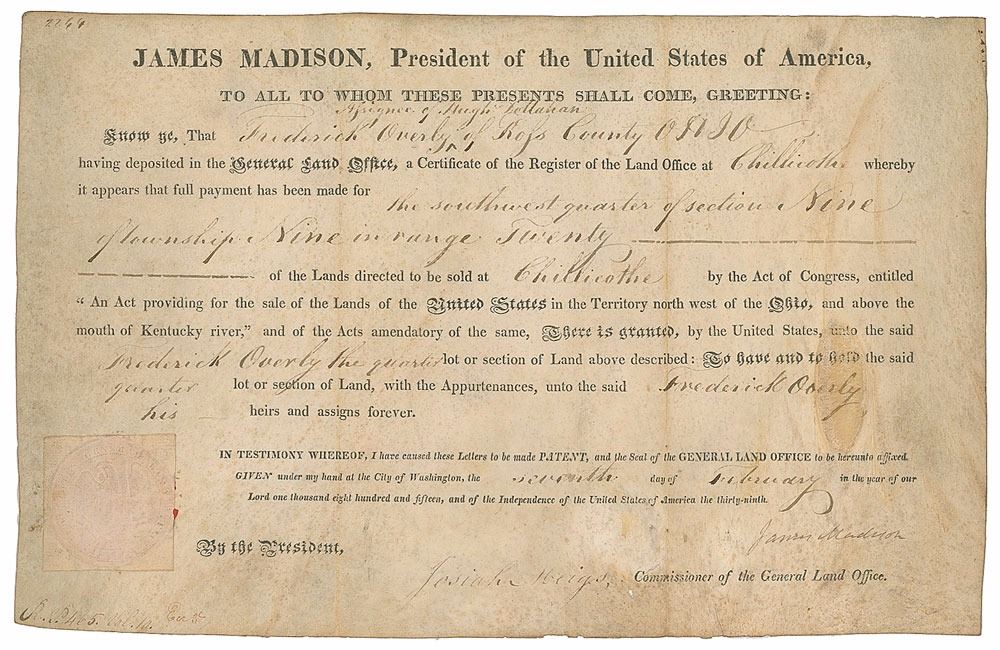 2264
JAMES MADISON, President of the United States of America,
TO ALL TO WHOM THESE PRESENTS SHALL COME, GREETING:
Assignee of Hugh
Know ye, That Frederick Overly of Ross County OHIO
having deposited in the General Land Office, a Certificate of the Register of the Land Office at Chillicothe whereby
it appears that full payment has been made for
the southwest quarter of section Nine
of township Nine in range Twenty
of the Lands directed to be sold at Chillicothe by the Act of Congress, entitled
"An Act providing for the sale of the Lands of the United States in the Territory north west of the Ohio, and above the
mouth of Kentucky river," and of the Acts amendatory of the same, There is granted, by the United States, unto the said
Frederick Overly the quarter lot or section of Land above described: To have and to hold the said
quarter lot or section of Land, with the Appurtenances, unto the said Frederick Overly,
his heirs and assigns forever.
IN TESTIMONY WHEREOF, I have caused these Letters to be made PATENT, and the Seal of the GENERAL LAND OFFICE to be hereunto affixed.
GIVEN under my hand at the City of Washington, the seventh day of February in the year of our
Lord one thousand eight hundred and fifteen, and of the Independence of the United States of America the thirty-ninth.
James Madison
By the President,
Josiah Meigs, Commissioner of the General Land Office.